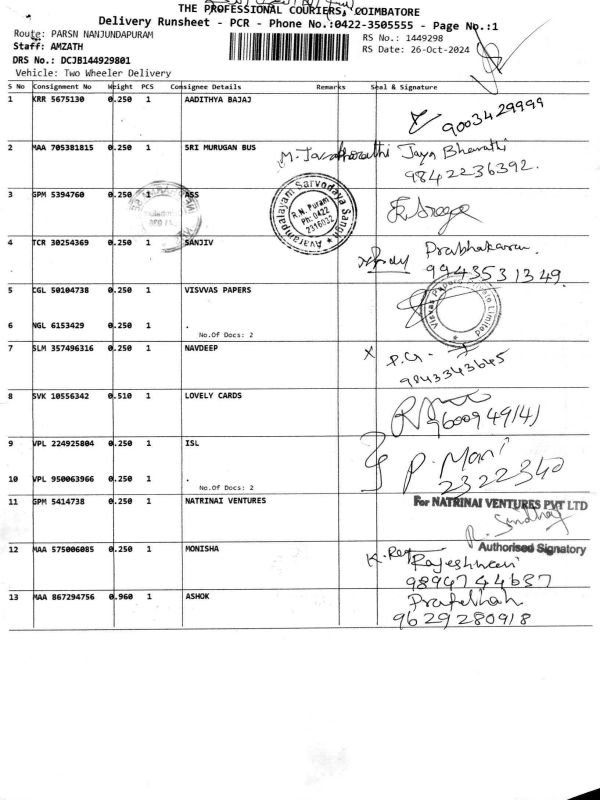 THE PROFESSIONAL COURIERS, COIMBATORE
Delivery Runsheet - PCR - Phone No.:0422-3505555 - Page No.:1
Route: PARSN NANJUNDAPURAM
RS No.: 1449298
Staff: AMZATH
RS Date: 26-Oct-2024
DRS No.: DCJB144929801
Vehicle: Two Wheeler Delivery
S No Consignment No Weight PCS Consignee Details Remarks Seal & Signature
1 KRR 5675130 0.250 1 AADITHYA BAJAJ
9003429999
2 MAA 705381815 0.250 1 SRI MURUGAN BUS
Jaya Bharathi
9842236392.
3 GPM 5394760 0.250 1 ASS
Avarampalayam Sarvodaya Sangh
R.N. Puram
Ph: 0422
2316032
4 TCR 30254369 0.250 1 SANJIV
Prabhakaran.
9943531349.
5 CGL 50104738 0.250 1 VISVVAS PAPERS
Visvas Papers Private Limited
6 NGL 6153429 0.250 1 .
No.Of Docs: 2
7 SLM 357496316 0.250 1 NAVDEEP
P.G.
9843343645
8 SVK 10556342 0.510 1 LOVELY CARDS
9600949141
9 VPL 224925804 0.250 1 ISL
P. Mani
2322340
10 VPL 950063966 0.250 1 .
No.Of Docs: 2
11 GPM 5414738 0.250 1 NATRINAI VENTURES
For NATRINAI VENTURES PVT LTD
Authorised Signatory
12 MAA 575006085 0.250 1 MONISHA
Rajeshwari
9894744637
13 MAA 867294756 0.960 1 ASHOK
9629280918